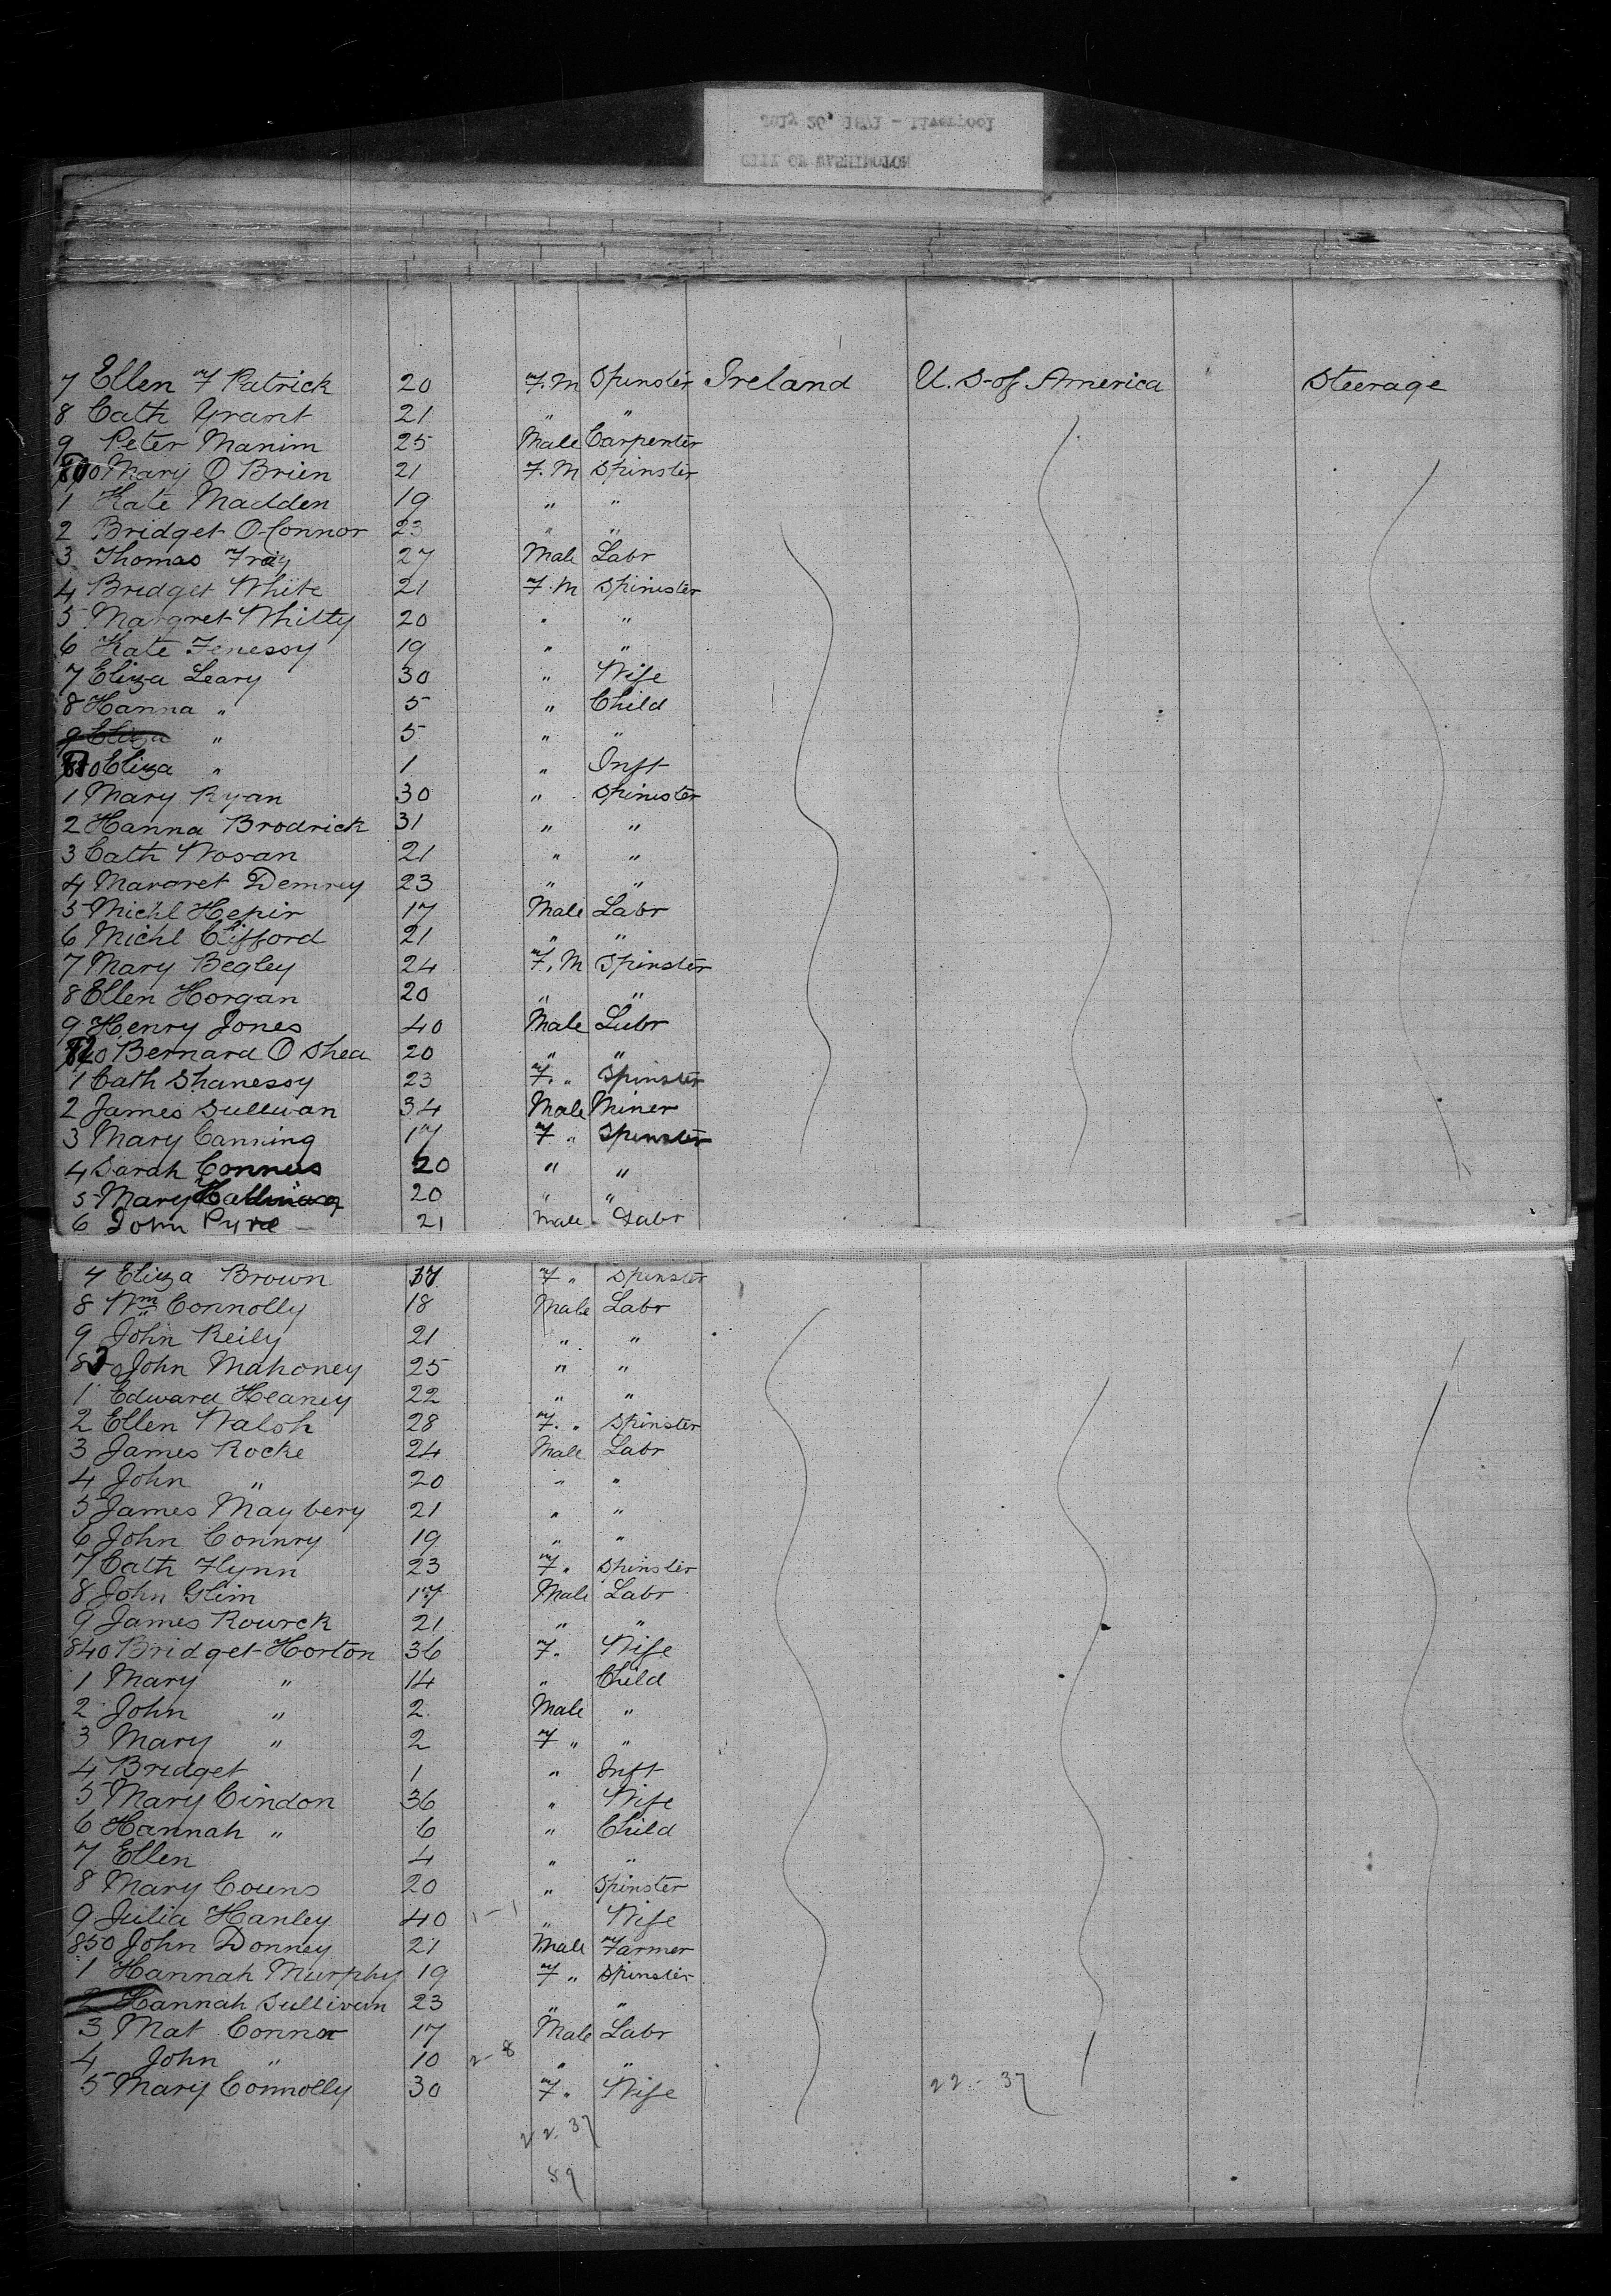 July 26, 1871 - Liverpool
CITY OF WASHINGTON
7 Ellen F Patrick 20 F.M Spinster Ireland U. S. of America Steerage
8 Cath Grant 21 " "
9 Peter Manim 25 Male Carpenter
Mary O Brien 21 F.M Spinster
1 Kate Madden 19 " "
2 Bridget O Connor 23 " "
3 Thomas Fray 27 Male Labr
4 Bridget White 21 F.M Spinister
5 Margret Whitty 20 " "
6 Kate Fenessy 19 " "
7 Eliza Leary 30 " Wife
8 Hanna " 5 " Child
9 Eliza " 5 " "
Eliza " 1 " Inft
1 Mary Ryan 30 " Spinister
2 Hanna Brodrick 31 " "
3 Cath Nosan 21 " "
4 Margret Demrey 23 " "
5 Michl Hepir 17 Male Labr
6 Michl Clifford 21 " "
7 Mary Begley 24 F.M Spinster
8 Ellen Horgan 20 " "
9 Henry Jones 40 Male Labr
Bernard O Shea 20 " "
1 Cath Shanessy 23 F. " Spinster
2 James Sullivan 34 Male Miner
3 Mary Canning 17 F " Spinster
4 Sarah Connus 20 " "
5 Mary 20 " "
6 John Pyne 21 Male Labr
7 Eliza Brown 37 F " Spinster
8 Wm Connolly 18 Male Labr
9 John Reily 21 " "
830 John Mahoney 25 " "
1 Edward Heaney 22 " "
2 Ellen Walsh 28 F. " Spinster
3 James Rocke 24 Male Labr
4 John " 20 " "
5 James Maybery 21 " "
6 John Connry 19 " "
7 Cath Flynn 23 F " Spinster
8 John Glim 17 Male Labr
9 James Rourck 21 " "
840 Bridget Horton 36 F. Wife
1 Mary " 14 " Child
2 John " 2 Male "
3 Mary " 2 F " "
4 Bridget 1 " Inft
5 Mary Cindon 36 " Wife
6 Hannah " 6 " Child
7 Ellen 4 " "
8 Mary Couns 20 " Spinster
9 Julia Hanley 40 1 - 1 " Wife
850 John Donney 21 Male Farmer
1 Hannah Murphy 19 F " Spinster
2 Hannah Sullivan 23 " "
3 Mat Connor 17 Male Labr
4 John " 10 2 - 8 " "
5 Mary Connolly 30 F. " Wife 22 - 37
22. 37
59